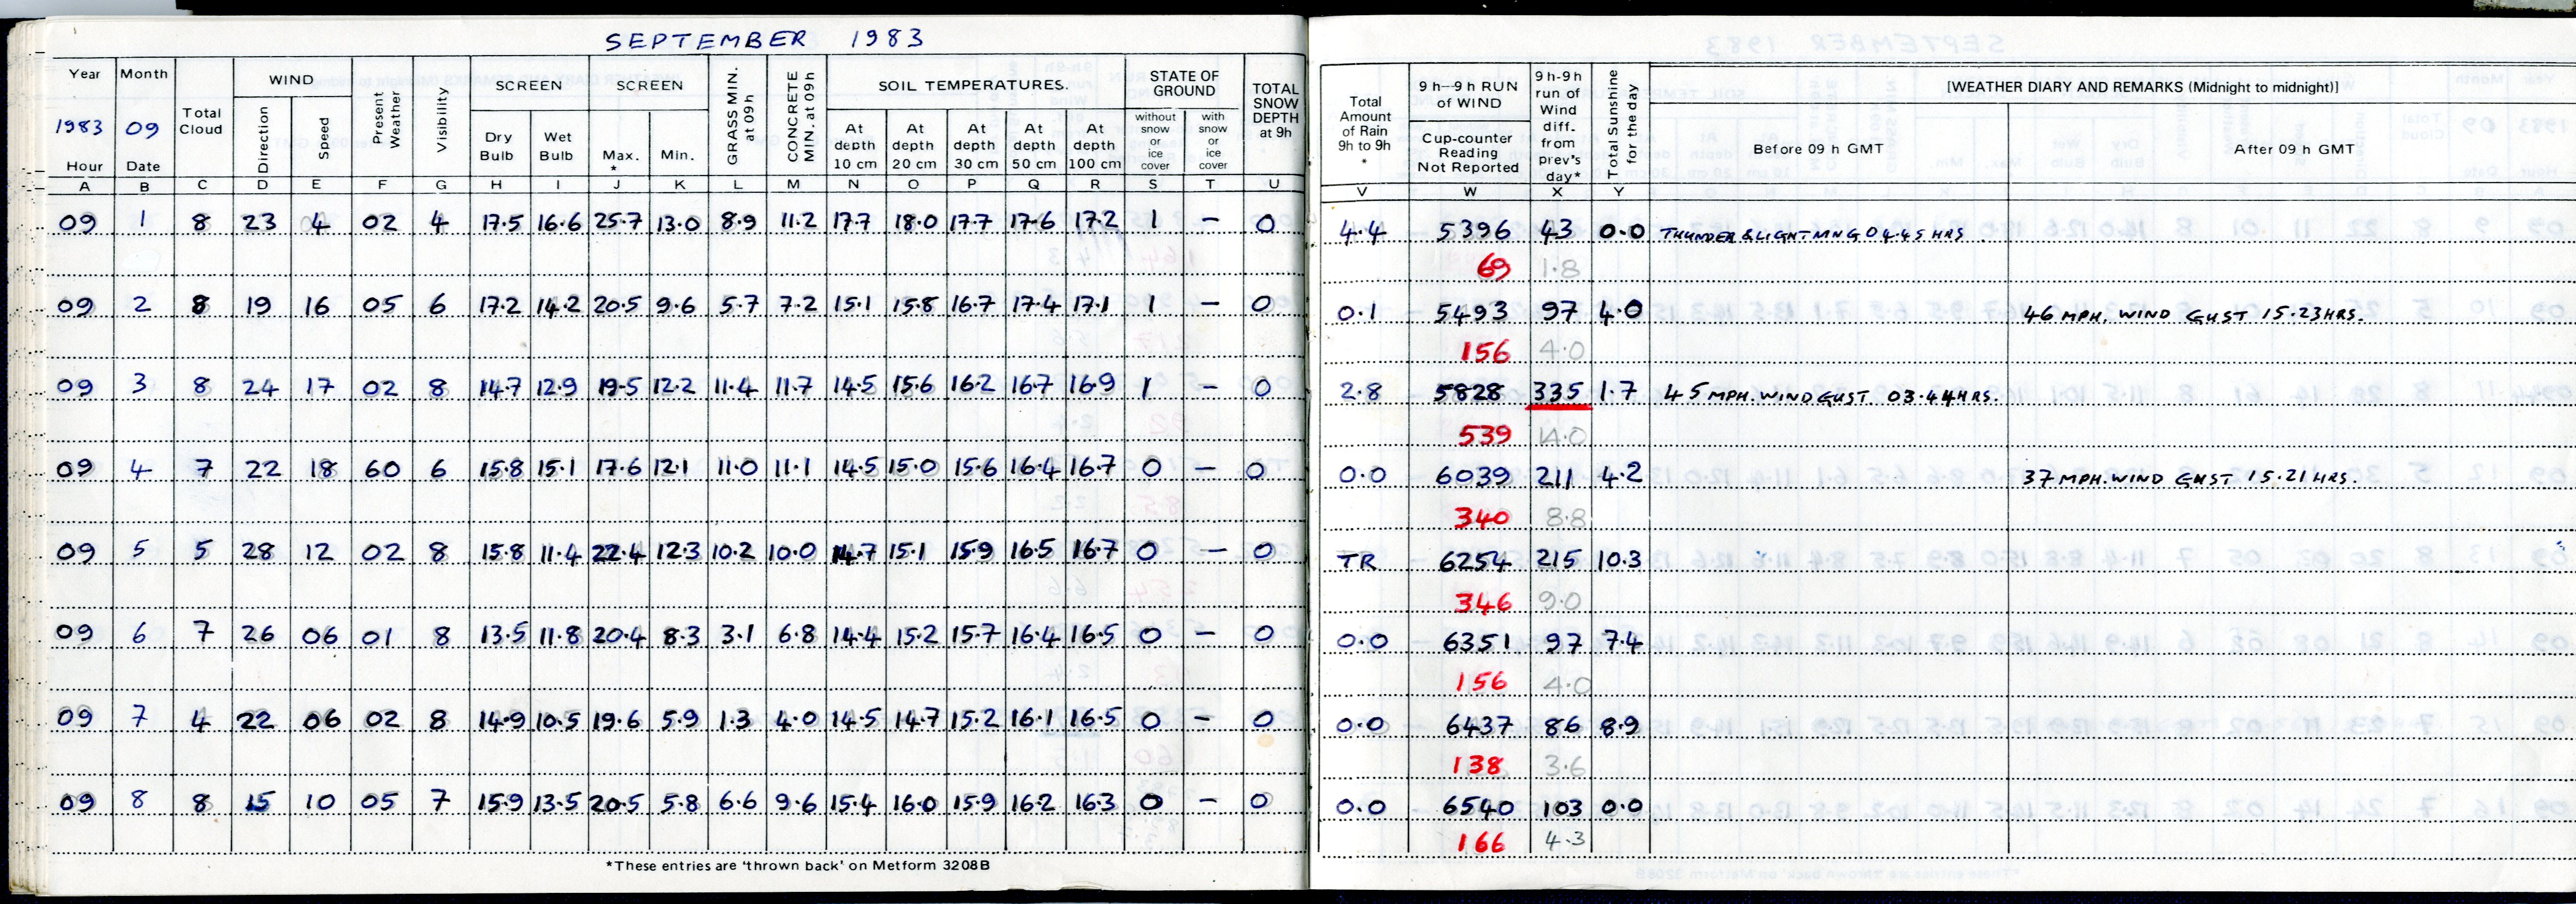 SEPTEMBER 1983
Year Month Total Cloud WIND Present Weather Visibility SCREEN SCREEN GRASS MIN. at 09h CONCRETE MIN. at 09h SOIL TEMPERATURES. STATE OF GROUND TOTAL SNOW DEPTH at 9h Total Amount of Rain 9h to 9h * 9 h--9 h RUN of WIND 9 h-9 h run of Wind diff. from prev's day* Total Sunshine for the day [WEATHER DIARY AND REMARKS (Midnight to midnight)]
1983 09 Direction Speed Dry Bulb Wet Bulb Max. * Min. At depth 10 cm At depth 20 cm At depth 30 cm At depth 50 cm At depth 100 cm without snow or ice cover with snow or ice cover Cup-counter Reading Not Reported Before 09 h GMT After 09 h GMT
Hour Date
A B C D E F G H I J K L M N O P Q R S T U V W X Y
09 1 8 23 4 02 4 17.5 16.6 25.7 13.0 8.9 11.2 17.7 18.0 17.7 17.6 17.2 1 - 0 4.4 5396 43 0.0 THUNDER & LIGHTNING 04.45 HRS
69 1.8
09 2 8 19 16 05 6 17.2 14.2 20.5 9.6 5.7 7.2 15.1 15.8 16.7 17.4 17.1 1 - 0 0.1 5493 97 4.0 46 MPH. WIND GUST 15.23HRS.
156 4.0
09 3 8 24 17 02 8 14.7 12.9 19.5 12.2 11.4 11.7 14.5 15.6 16.2 16.7 16.9 1 - 0 2.8 5828 335 1.7 45 MPH. WIND GUST 03.44HRS.
539 14.0
09 4 7 22 18 60 6 15.8 15.1 17.6 12.1 11.0 11.1 14.5 15.0 15.6 16.4 16.7 0 - 0 0.0 6039 211 4.2 37 MPH. WIND GUST 15.21 HRS.
340 8.8
09 5 5 28 12 02 8 15.8 11.4 22.4 12.3 10.2 10.0 14.7 15.1 15.9 16.5 16.7 0 - 0 TR 6254 215 10.3
346 9.0
09 6 7 26 06 01 8 13.5 11.8 20.4 8.3 3.1 6.8 14.4 15.2 15.7 16.4 16.5 0 - 0 0.0 6351 97 7.4
156 4.0
09 7 4 22 06 02 8 14.9 10.5 19.6 5.9 1.3 4.0 14.5 14.7 15.2 16.1 16.5 0 - 0 0.0 6437 86 8.9
138 3.6
09 8 8 15 10 05 7 15.9 13.5 20.5 5.8 6.6 9.6 15.4 16.0 15.9 16.2 16.3 0 - 0 0.0 6540 103 0.0
166 4.3
*These entries are 'thrown back' on Metform 3208B